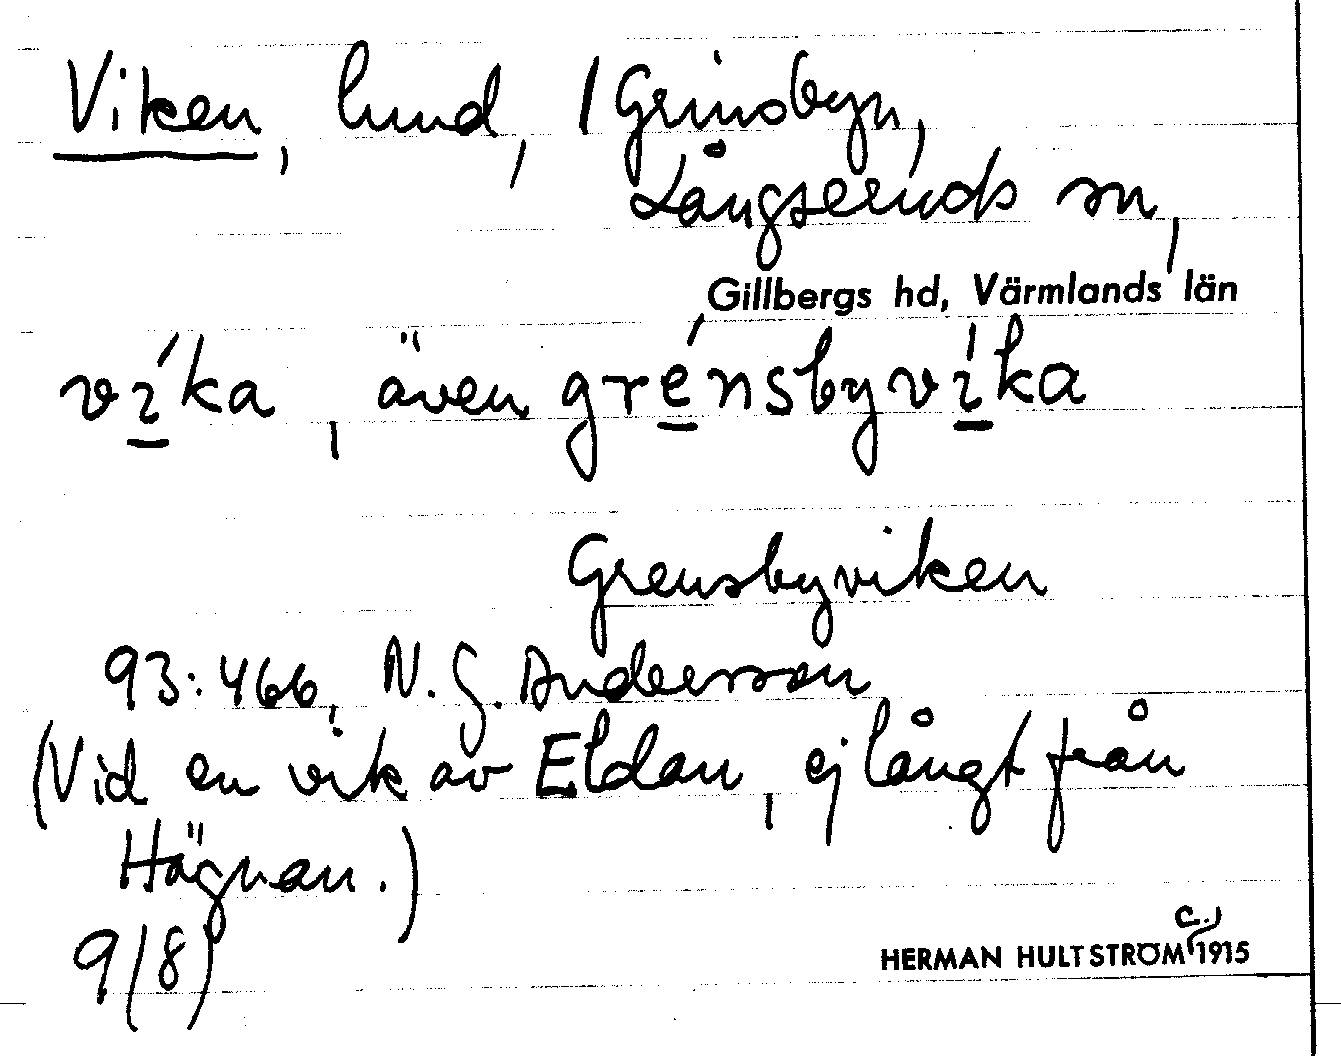 Viken, lund, / Grinsbyn,
Långseruds sn,
Gillbergs hd, Värmlands län
ví̱ka, även gré̱nsbyví̱ka
Grensbyviken
93:466, N. G. Andersson
(Vid en vik av Eldan, ej långt från
Hägnan.)
9/8)
HERMAN HULTSTRÖM c. 1915